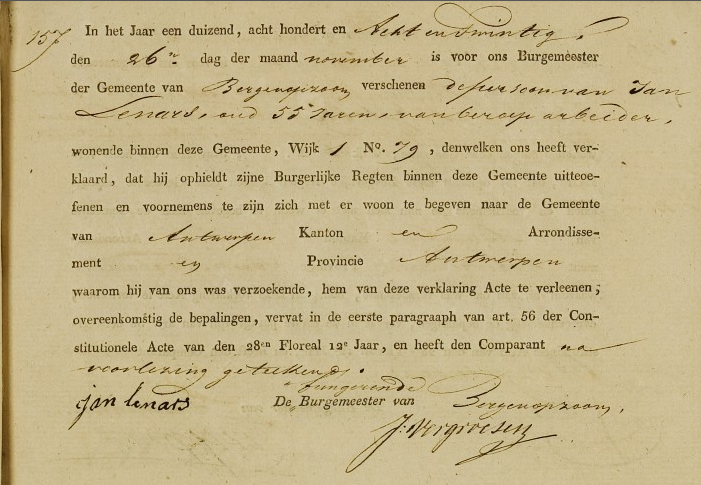 157 In het Jaar een duizend, acht hondert en Acht en Twintig,
den 26n dag der maand november is voor ons Burgemeester
der Gemeente van Bergenopzoom verschenen de persoon van Jan
Lenars, oud 55 Jaren, van beroep arbeider,
wonende binnen deze Gemeente, Wijk 1 No. 79, denwelken ons heeft ver-
klaard, dat hij ophieldt zijne Burgerlijke Regten binnen deze Gemeente uitteoe-
fenen en voornemens te zijn zich met er woon te begeven naar de Gemeente
van Antwerpen Kanton en Arrondisse-
ment en Provincie Antwerpen
waarom hij van ons was verzoekende, hem van deze verklaring Acte te verleenen,
overeenkomstig de bepalingen, vervat in de eerste paragraaph van art. 56 der Con-
stitutionele Acte van den 28en Floreal 12e Jaar, en heeft den Comparant na
voorlezing getekend.
fungerende
jan lenars De Burgemeester van Bergenopzoom,
J: Vergroesen